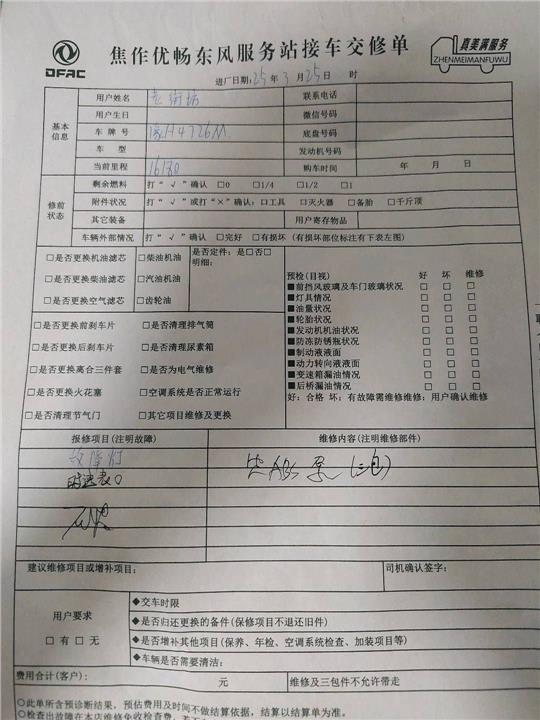 DFAC
焦作优畅东风服务站接车交修单
真美满服务
ZHENMEIMANFUWU
进厂日期:25年3月25日 时
基本信息
用户姓名 联系电话
用户生日 微信号码
车牌号 豫H4726M 底盘号码
车型 发动机号码
当前里程 16180 购车时间 年 月 日
修前状态
剩余燃料 打“√”确认 □0 □1/4 □1/2 □1
附件状况 打“√”或打“×”确认:□工具 □灭火器 □备胎 □千斤顶
其它装备 用户寄存物品
车辆外部情况 打“√”确认 □完好 □有损坏(有损坏部位标注有下表左图)
□是否更换机油滤芯 □柴油机油 是否定件:是□否□
明细:
□是否更换柴油滤芯 □汽油机油
□是否更换空气滤芯 □齿轮油
□是否更换前刹车片 □是否清理排气筒
□是否更换后刹车片 □是否清理尿素箱
□是否更换离合三件套 □是否为电气维修
□是否更换火花塞 □空调系统是否正常运行
□是否清理节气门 □其它项目维修及更换
预检(目视) 好 坏 维修
■前挡风玻璃及车门玻璃状况 □ □ □
■灯具情况 □ □ □
■油量状况 □ □ □
■轮胎状况 □ □ □
■发动机机油状况 □ □ □
■防冻防锈瓶状况 □ □ □
■制动液液面 □ □ □
■动力转向液液面 □ □ □
■变速箱漏油情况 □ □ □
■后桥漏油情况 □ □ □
好:合格 坏:有故障需维修维修:用户确认维修
报修项目(注明故障) 维修内容(注明维修部件)
故障灯
ABS泵(三包)
时速表0
建议维修项目或增补项目: 司机确认签字:
用户要求
□有□无
◆交车时限
◆是否归还更换的备件(保修项目不退还旧件)
◆是否增补其他项目(保养、年检、空调系统检查、加装项目等)
◆车辆是否需要清洁:
费用合计(客户): 元 维修及三包件不允许带走
○此单所含预诊断结果,预估费用及时间不做结算依据,结算以结算单为准。
○检查出故障在本店维修免收检查费,